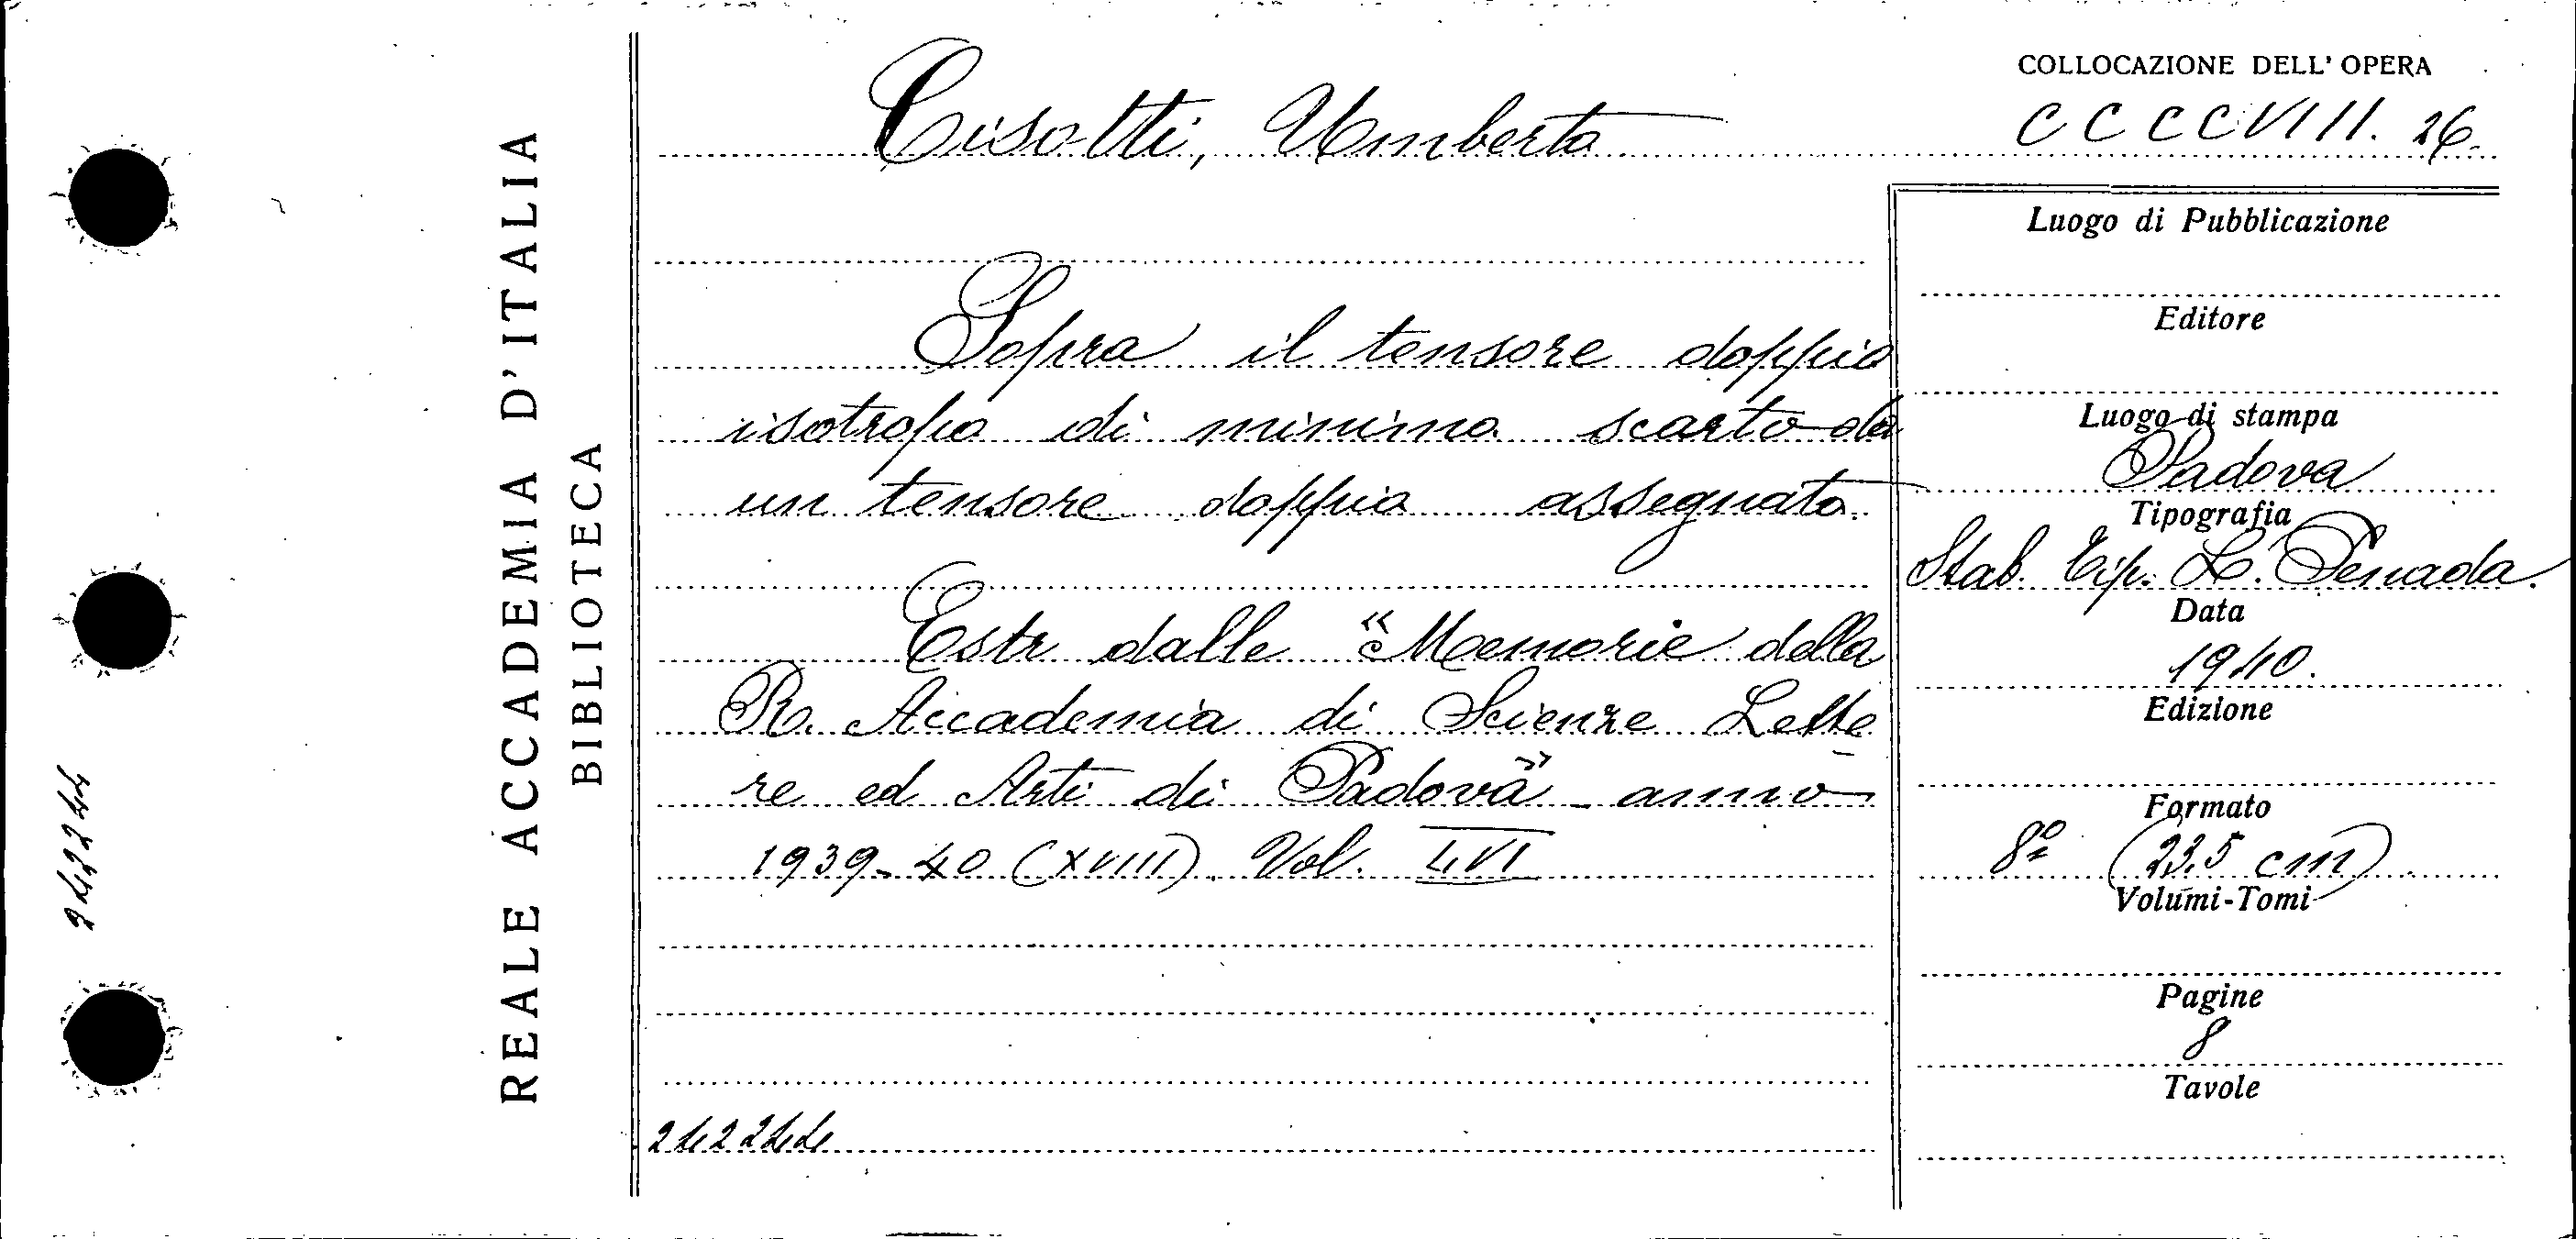 REALE ACCADEMIA D'ITALIA
BIBLIOTECA
24244
Cisotti, Umberto
Sopra il tensore doppio
isotropo di minimo scarto da
un tensore doppio assegnato.
Estr dalle "Memorie della
R. Accademia di Scienze Lette
re ed Arti di Padova" - anno
1939-40 (XVIII). Vol. LVI
24244
COLLOCAZIONE DELL' OPERA
CCCCVIII. 26.
Luogo di Pubblicazione
Editore
Luogo di stampa
Padova
Tipografia
Stab. Tip. L. Penada.
Data
1940.
Edizione
Formato
8º (23,5 cm)
Volumi-Tomi
Pagine
8
Tavole